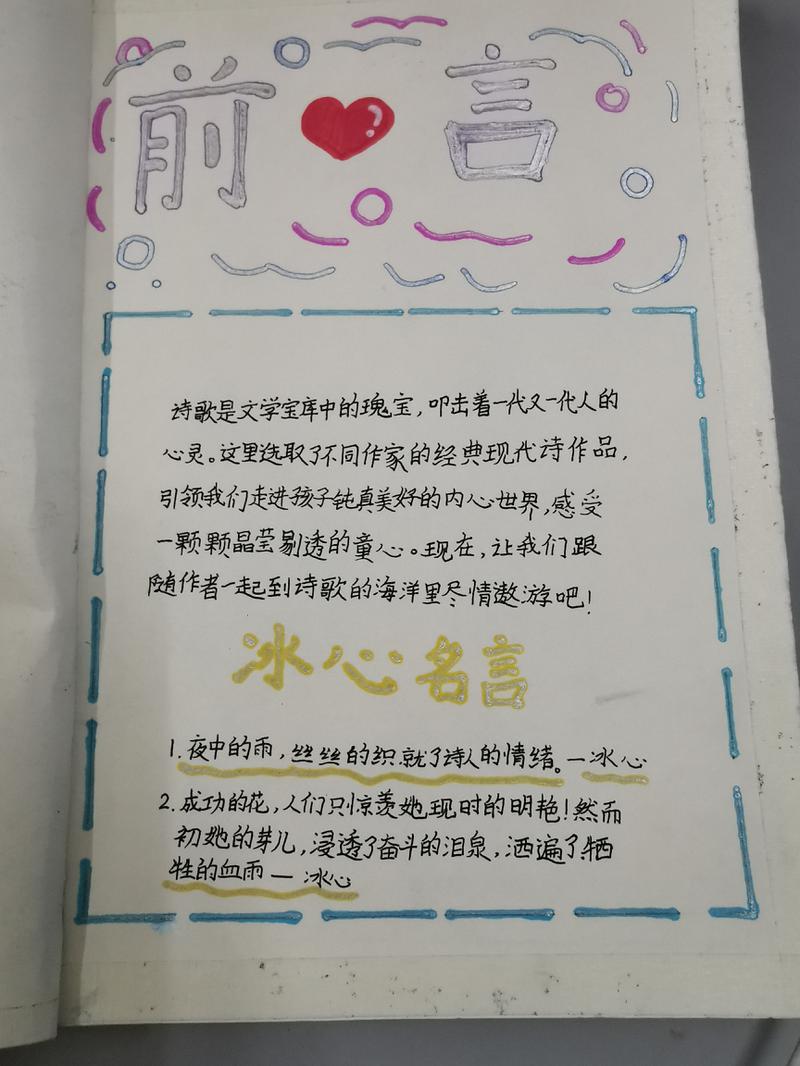 前言
诗歌是文学宝库中的瑰宝，叩击着一代又一代人的
心灵。这里选取了不同作家的经典现代诗作品，
引领我们走进孩子钝真美好的内心世界，感受
一颗颗晶莹剔透的童心。现在，让我们跟
随作者一起到诗歌的海洋里尽情遨游吧！
冰心名言
1.夜中的雨，丝丝的织就了诗人的情绪。—冰心
2.成功的花，人们只惊羡她现时的明艳！然而
初她的芽儿，浸透了奋斗的泪泉，洒遍了牺
牲的血雨—冰心